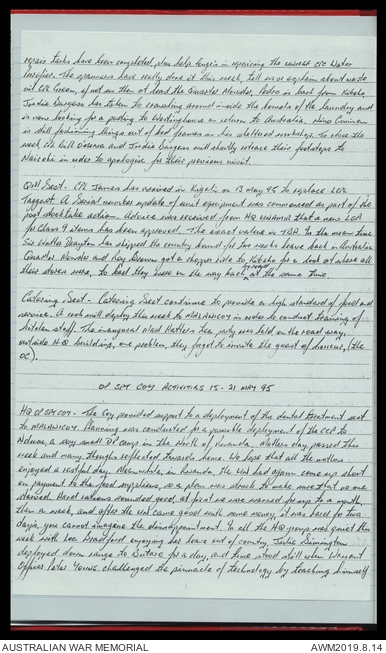 repair tasks have been completed, plus help Engrs in repairing the
The spanners have really done it this week, tell us or explain about waste
oil CPL Green, if not us then at least the Quarter Monster, Pedro is back from Kibeho
Jodie Surgess has taken to crawling around inside the bowels of the laundry and
is now looking for a posting to Westinghouse on return to Australia. Nino
is still fashioning things out of bed frames in his workshop. To close the
week CPL Bill O'Shea and Jodie Surgess will shortly retrace their footsteps to
Nairobi in order to apologise for their previous visit.
QM Sect - CPL James has arrived in Kigali on 13 May 95 to replace LCPL
Taggart. A Serial number update of unit equipment was commenced as part of the
post stocktake action. Advice was received from HQ UNAMIR that a new LOA
for Class 9 items has been approved. The exact value is TBA. In the mean time
Sue Drayton has skipped the country bound for two weeks leave back in Australia
Quarter Monster and Guy Brown got a chopper ride to Kibeho for a look at where all
their stores were, to bad they were on the way back by road at the same time.
Catering Sect - Catering Sect continue to provide a high standard of food and
service. A cook will deploy this week to MALANICOY in order to conduct training of
kitchen staff. The inaugural Mad Hatters tea party was held on the road way,
outside HQ building, one problem, they forgot to invite the guest of honour, (the
OC).
OP SPT COY ACTIVITIES 15 - 21 MAY 95
HQ OP SPT COY - The Coy provided support to a deployment of the dental treatment sect
to MALANICOY. Planning was conducted for a possible deployment of the CCP to
Nduma, a very small DP camp in the North of Rwanda. Mothers day passed this
week and many thoughts reflected towards home. We hope that all the mothers
enjoyed a restful day. Meanwhile, in Rwanda, the UN had again come up short
on payment to the food suppliers, so a plan was struck to make sure that no one
starved. Hard rations sounded good, at first we were warned for up to a month,
then a week, and after the UN came good with some money, it was hard for two
days, you cannot imagine the disappointment. In all the HQ group was quiet this
week with Lea Bradford enjoying her leave out of country, Julie Simington
deployed down range to Butare for a day, and time stood still when Warrant
Officer Peter Young challenged the pinnacle of technology by teaching himself
AUSTRALIAN WAR MEMORIAL
AWM2019.8.14